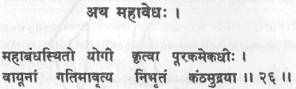 अथ महावेधः ।
महाबंधस्थितो योगी कृत्वा पूरकमेकधीः ।
वायूनां गतिमावृत्य निभृतं कंठमुद्रया ॥ २६ ॥